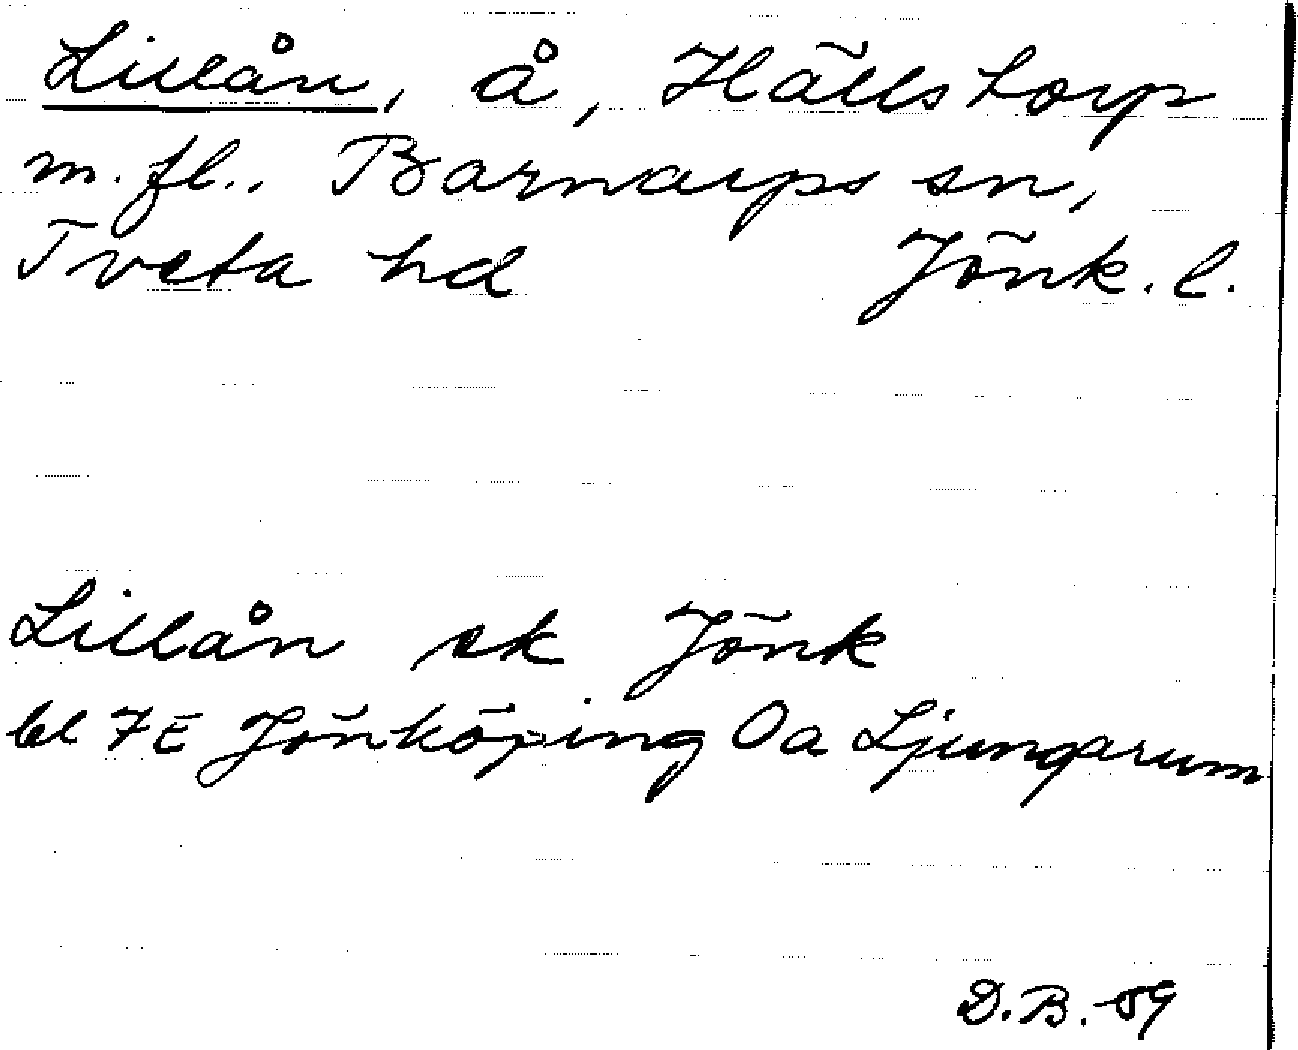 Lillån, å, Hällstorp
m. fl., Barnarps sn,
Tveta hd Jönk. l.
Lillån ek Jönk
bl 7E Jönköping Oa Ljungarum
D.B. -59